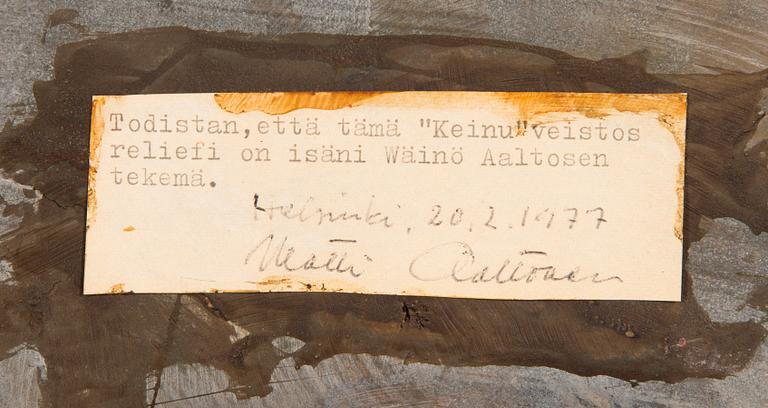 Todistan,että tämä "Keinu"veistos
reliefi on isäni Wäinö Aaltosen
tekemä.
Helsinki, 20.2.1977
Matti Aaltonen